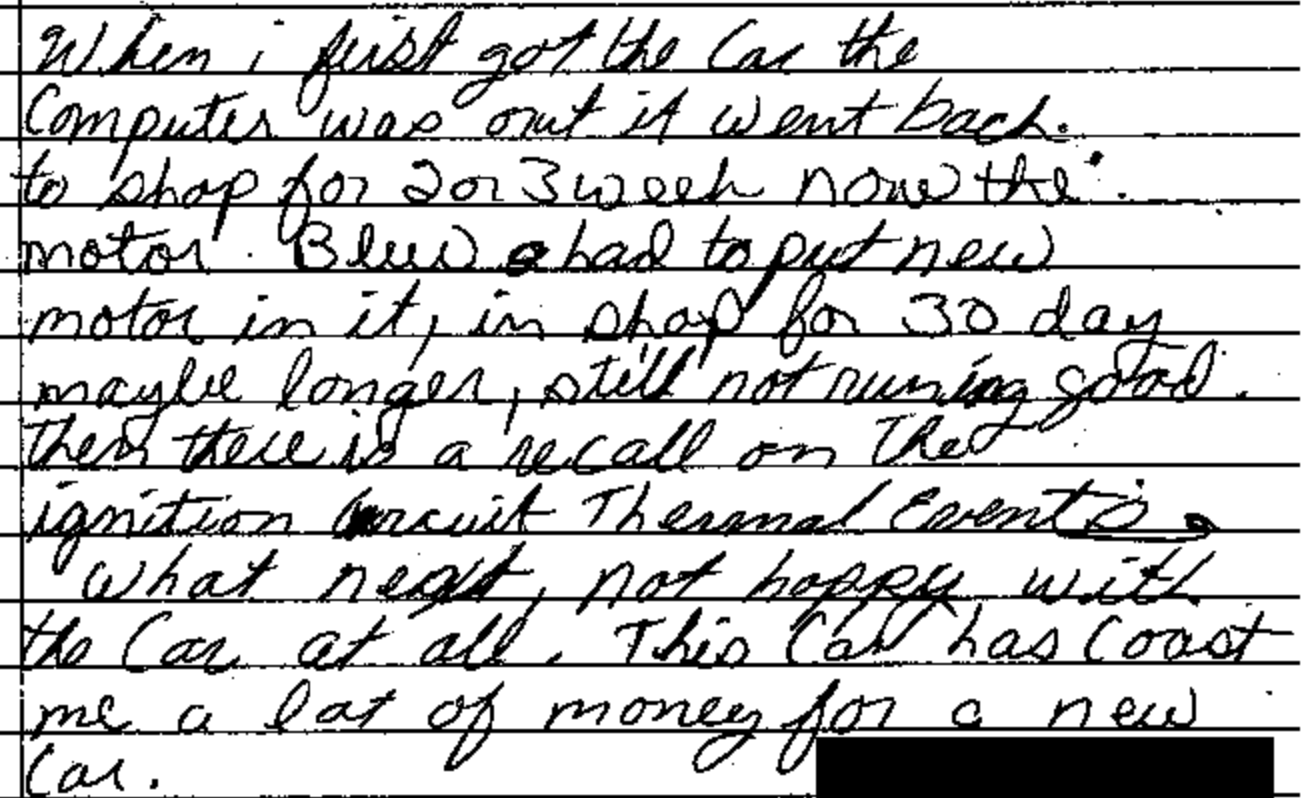 When i first got the Car the
Computer was out it went back
to shop for 2 or 3 week now the
motor Blew had to put new
motor in it, in shop for 30 day
maybe longer, still not runing good.
then there is a recall on The
ignition Circuit Thermal Events.
what next, not happy with
the Car at all. This Car has Coast
me a lot of money for a new
Car.